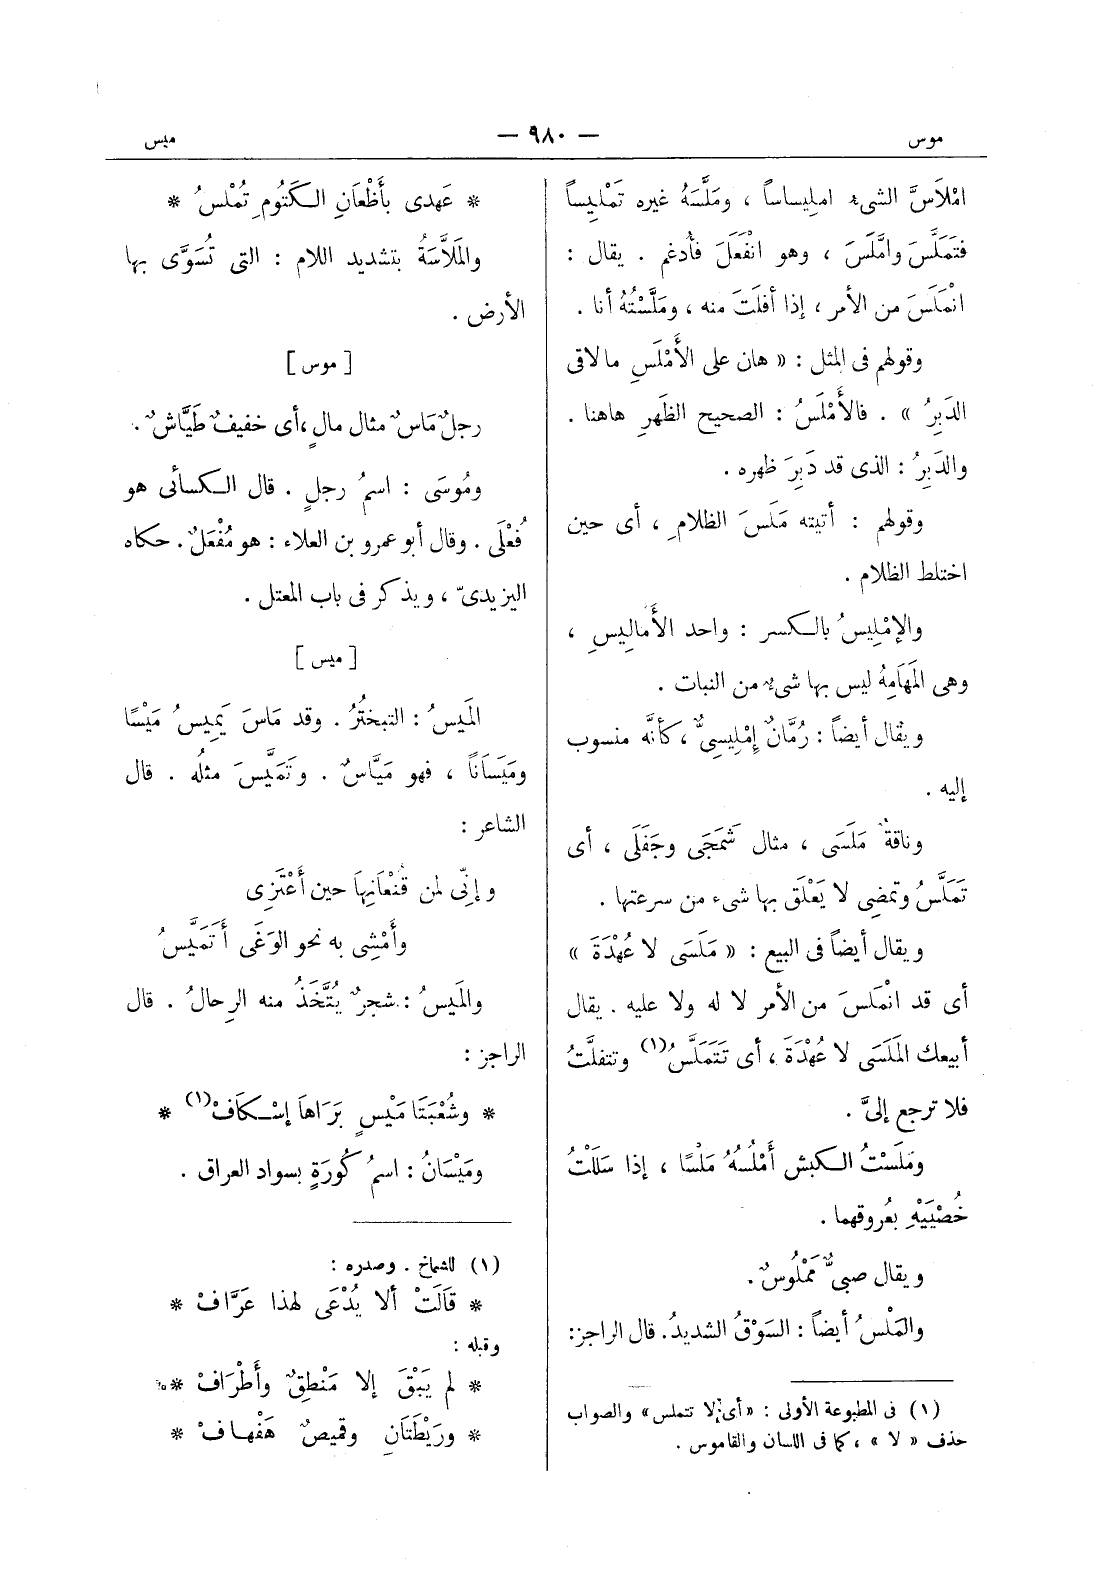 موس
— ٩٨٠ —
ميس
امْلَاسَّ الشىء امليساساً ، ومَلَّسَهُ غيره تَمْلِيساً
فتَمَلَّسَ وامَّلَسَ ، وهو انْفَعَلَ فأدغم . يقال :
انْمَلَسَ من الأمر ، إذا أفلَتَ منه ، ومَلَّسْتُهُ أنا .
وقولهم فى المثل : « هان على الأَمْلَسِ ما لاقى
الدَبِرُ » . فالأَمْلَسُ : الصحيح الظَهرِ هاهنا .
والدَبِرُ : الذى قد دَبِرَ ظهره .
وقولهم : أتيته مَلَسَ الظلامِ ، أى حين
اختلط الظلام .
والإمْلِيسُ بالكسر : واحد الأَمالِيسِ ،
وهى المَهَامِهُ ليس بها شىء من النبات .
ويقال أيضاً : رُمَّانٌ إمْلِيسِىٌّ ، كأنَّه منسوب
إليه .
وناقةٌ مَلَسَى ، مثال شَمَجَى وجَفَلَى ، أى
تَمَلَّسُ وتمضِى لا يَعْلَق بها شىء من سرعتها .
ويقال أيضاً فى البيع : « مَلَسَى لا عُهْدَةَ »
أى قد انْمَلَسَ من الأمر لا له ولا عليه . يقال
أبيعك المَلَسَى لا عُهْدَةَ ، أى تَتَمَلَّسُ (١) وتتفلَّتُ
فلا ترجع إلىَّ .
ومَلَسْتُ الكبش أَمْلُسُهُ مَلْسًا ، إذا سَلَلْتُ
خُصْيَيْهِ بعُروقهما .
ويقال صبىٌّ مَمْلُوسٌ .
والمَلْسُ أيضاً : السَوْقُ الشديدُ. قال الراجز:
(١) فى المطبوعة الأولى : «أى لا تتملس» والصواب
حذف « لا » ، كما فى اللسان والقاموس .
* عَهدى بأَظْعَانِ الكَتُومِ تُمْلَسُ *
والمَلَّاسَةُ بتشديد اللام : التى تُسَوَّى بها
الأرض .
[ موس ]
رجلٌ مَاسٌ مثال مالٍ ، أى خفيفٌ طَيَّاشٌ .
ومُوسَى : اسمُ رجلٍ . قال الكسائى هو
فُعْلَى . وقال أبو عمرو بن العلاء : هو مُفْعَلٌ . حكاه
اليزيدىّ ، ويذكر فى باب المعتل .
[ ميس ]
المَيْسُ : التبخترُ . وقد مَاسَ يَمِيسُ مَيْسًا
ومَيَسَانًا ، فهو مَيَّاسٌ . وتَمَيَّسَ مثلُه . قال
الشاعر :
وإنِّى لمن قُنْعَانِهَا حين أَعْتَزِى
وأَمْشِى به نحو الوَغَى أَتَمَيَّسُ
والمَيْسُ : شجرٌ يُتَّخَذُ منه الرِحالُ . قال
الراجز :
* وشُعْبَتَا مَيْسٍ بَرَاهَا إسْكَافْ (١) *
ومَيْسَانُ : اسمُ كُورَةٍ بسواد العراق .
(١) للشماخ . وصدره :
* قَالَتْ ألا يُدْعَى لهذا عَرَّافْ *
وقبله :
* لم يَبْقَ إلا مَنْطِقٌ وأَطْرَافْ *
* ورَيْطَتَانِ وقميصٌ هَفْهافْ *